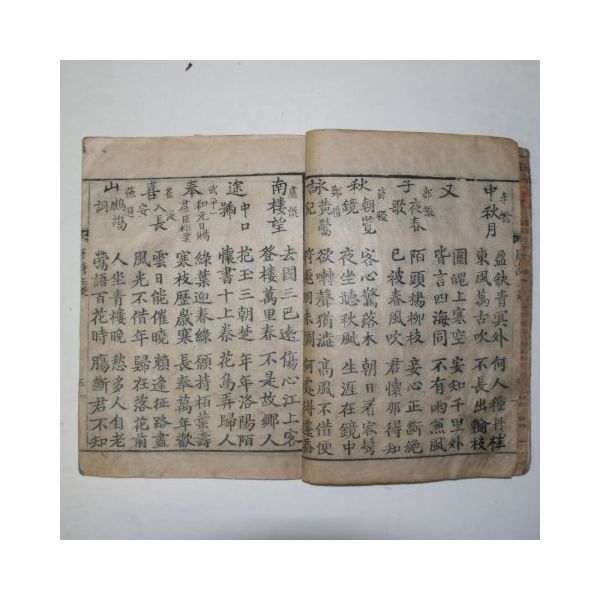 中秋月 李嶠
盈缺青冥外 何人種丹桂
東風萬古吹 不長出輪枝
又
圓魄上寒空 安知千里外
皆言四海同 不有雨兼風
子夜春歌 郭振
陌頭楊柳枝 妾心正斷絶
已被春風吹 君懷那得知
秋朝覽鏡 薛稷
客心驚落木 朝日看容鬢
夜坐聽秋風 生涯在鏡中
詠黃鶯兒 鄭愔
欲囀聲猶澁 高風不借便
將飛羽未調 何處得遷喬
南樓望 盧僎
去國三巴遠 傷心江上客
登樓萬里春 不是故鄉人
途中口號
抱玉三朝楚 年年洛陽陌
懷書十上秦 花鳥弄歸人
奉和元日賜群臣栢葉 武平一
綠葉迎春綠 願持栢葉壽
寒枝歷歲寒 長奉萬年歡
喜入長安 崔湜
雲日能催曉 賴逢征路盡
風光不惜年 歸在落花前
山鷓鴣詞 蘇頲
人坐青樓晚 愁多人自老
鶯語百花時 膓斷君不知